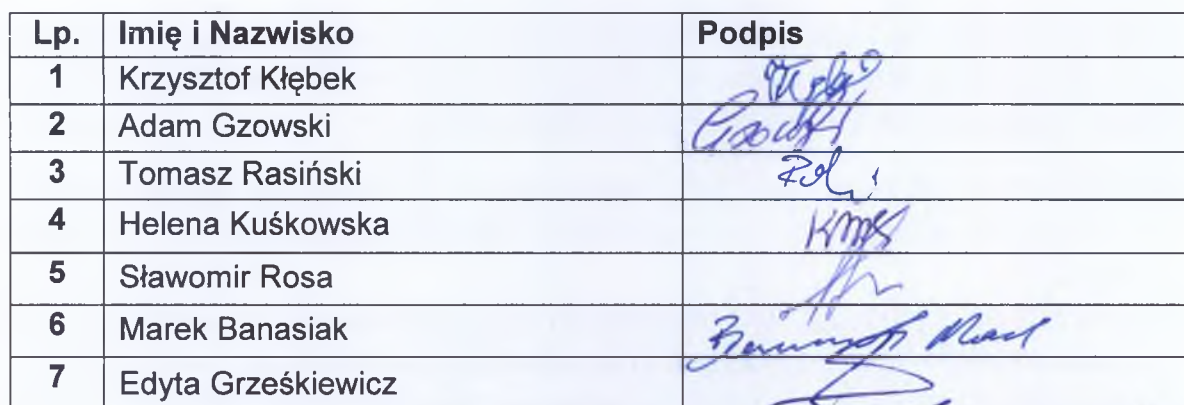 Lp. Imię i Nazwisko Podpis
1 Krzysztof Kłębek
2 Adam Gzowski
3 Tomasz Rasiński
4 Helena Kuśkowska
5 Sławomir Rosa
6 Marek Banasiak
7 Edyta Grześkiewicz